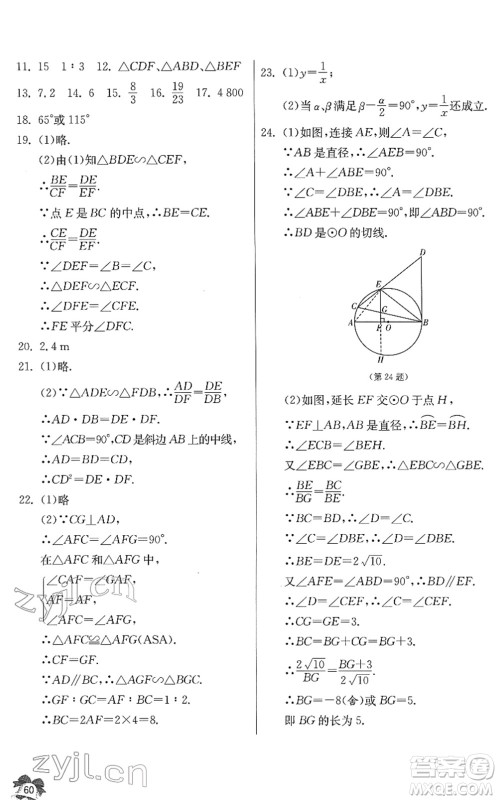 11. 15　1∶3　12. △CDF、△ABD、△BEF
13. 7.2　14. 6　15. 8/3　16. 19/23　17. 4 800
18. 65°或 115°
19. (1)略.
(2)由(1)知△BDE∽△CEF,
∴BE/CF=DE/EF.
∵点 E 是 BC 的中点,∴BE=CE.
∴CE/CF=DE/EF.
∵∠DEF=∠B=∠C,
∴△DEF∽△ECF.
∴∠DFE=∠CFE.
∴FE 平分∠DFC.
20. 2.4 m
21. (1)略.
(2)∵△ADE∽△FDB,∴AD/DF=DE/DB.
∴AD·DB=DE·DF.
∵∠ACB=90°,CD 是斜边 AB 上的中线,
∴AD=CD=DB.
∴CD²=DE·DF.
22. (1)略
(2)∵CG⊥AD,
∴∠AFC=∠AFG=90°.
在△AFG 和△AFC 中,
∠CAF=∠GAF,
AF=AF,
∠AFC=∠AFG,
∴△AFC≌△AFG(ASA).
∴CF=GF.
∵AD∥BC,∴△AGF∽△BGC.
∴GF∶GC=AF∶BC=1∶2.
∴BC=2AF=2×4=8.
60
23. (1)y=1/x;
(2)当 α、β 满足 β-α/2=90°,y=1/x 还成立.
24. (1)如图,连接 AE,则∠A=∠C.
∵AB 是直径,∴∠AEB=90°.
∴∠A+∠ABE=90°.
∵∠C=∠DBE,∴∠A=∠DBE.
∴∠ABE+∠DBE=90°,即∠ABD=90°.
∴BD 是⊙O 的切线.
D
E
C
G
A F O B
H
(第 24 题)
(2)如图,延长 EF 交⊙O 于点 H,
∵EF⊥AB,AB 是直径,∴BE=BH.
∴∠ECB=∠BEH.
又∠EBC=∠GBE,∴△EBC∽△GBE.
∴BE/BG=BC/BE.
∵BC=BD,∴∠D=∠C.
∵∠C=∠DBE,∴∠D=∠DBE.
∴BE=DE=2√10.
又∠AFE=∠ABD=90°,∴BD∥EF.
∴∠D=∠CEF.∴∠C=∠CEF.
∴CG=GE=3.
∴BC=BG+CG=BG+3.
∴2√10/BG=BG+3/2√10.
∴BG=-8(舍)或 BG=5.
即 BG 的长为 5.
zyjl.cn
zyjl.cn
答案圈
MXQE.COM